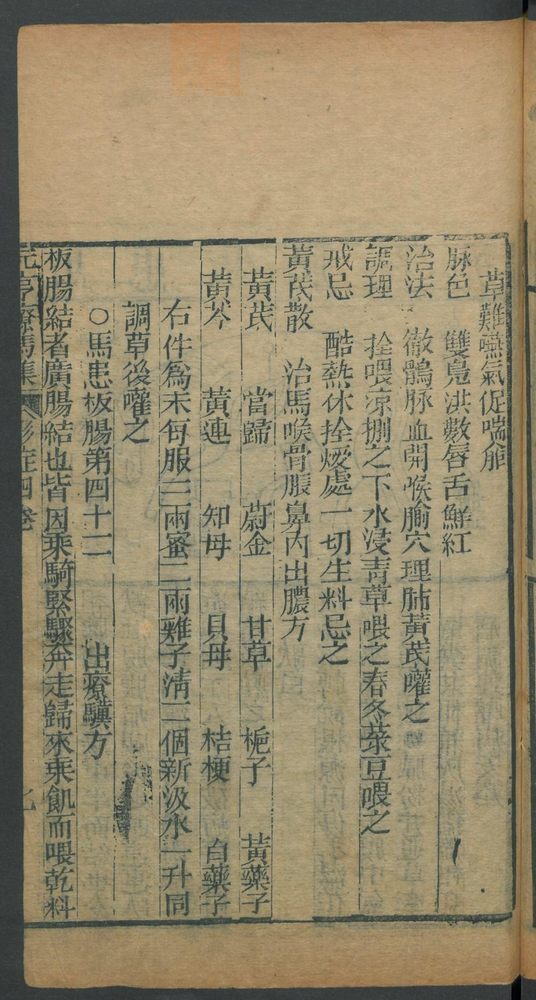 草難嚥氣促喘䶎
脉色　雙鳧洪數唇舌鮮紅
治法　徹鶻脉血開喉腧穴理肺黃芪嚾之
調理　拴喂凉棚之下水浸青草喂之春冬菉豆喂之
戒忌　酷熱休拴煖處一切生料忌之
黃芪散　治馬喉骨脹鼻內出膿方
黃芪　當歸　蔚金　甘草　梔子　黃藥子
黃芩　黃連　知母　貝母　桔梗　白藥子
右件為末每服三兩蜜二兩雞子淸二個新汲水一升同
調草後嚾之
○馬患板腸第四十二　出療驥方
板腸結者廣腸結也皆因乘騎緊驟奔走歸來乘飢而喂乾料
元亨療馬集　四卷